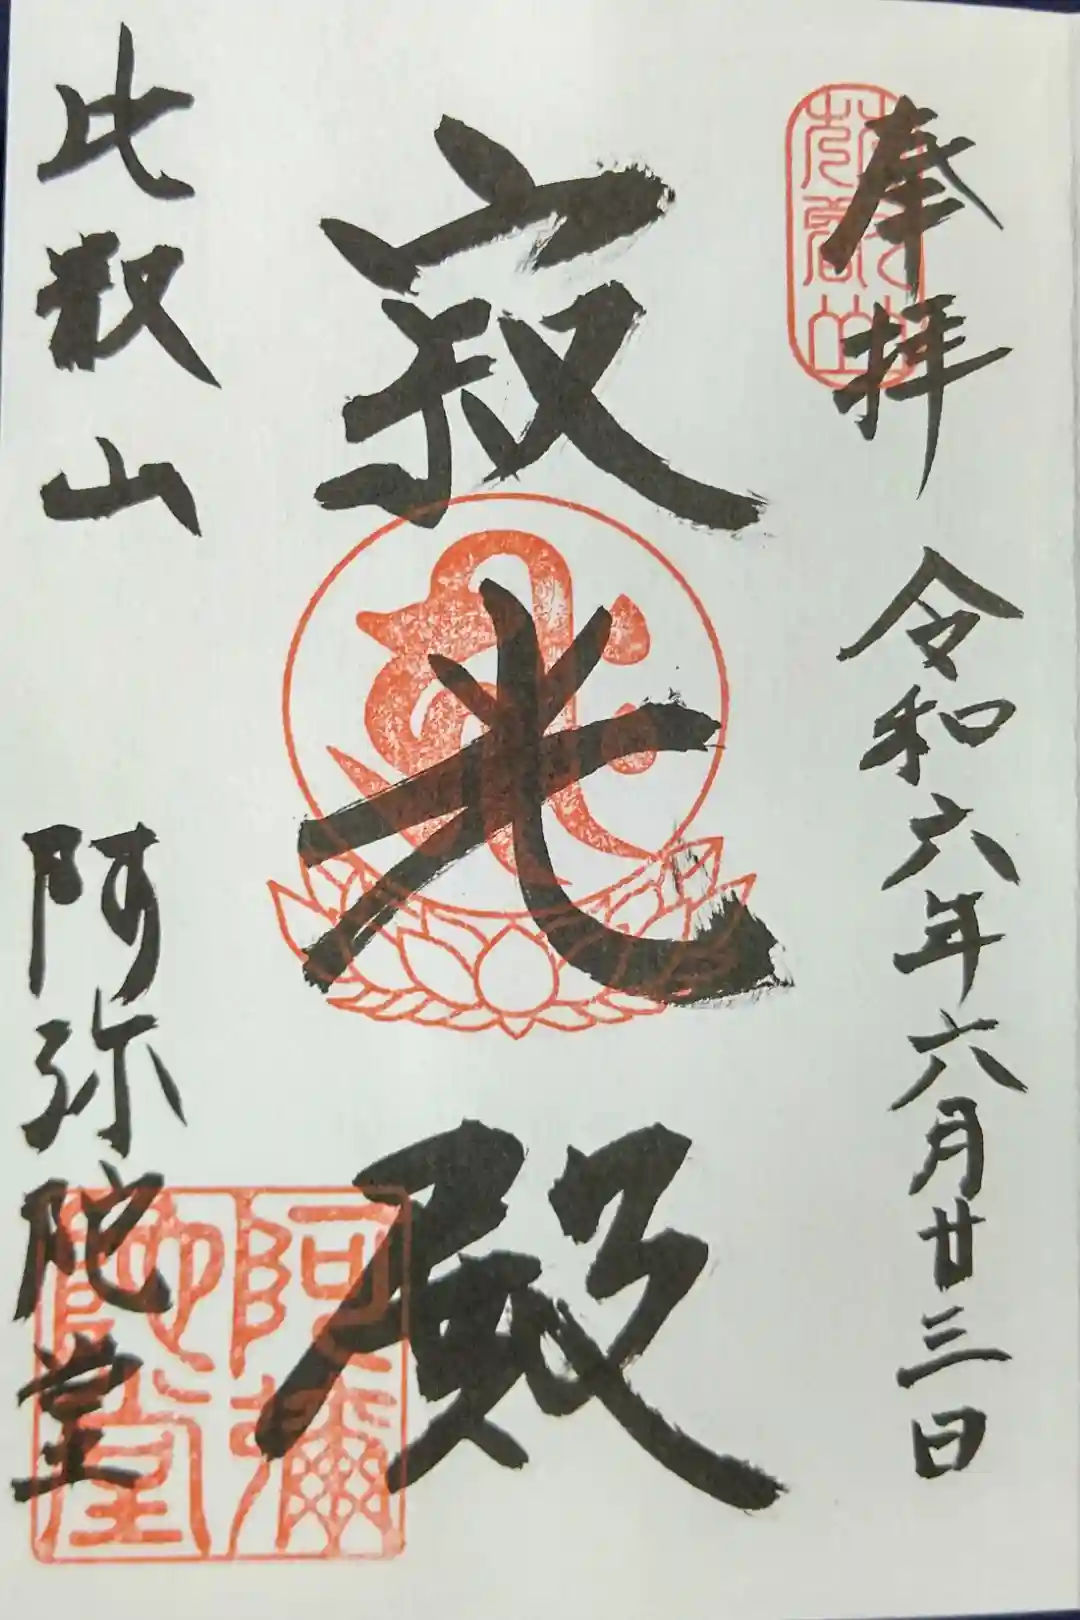 奉拝 令和六年六月廿三日
寂光殿
比叡山 阿弥陀堂
阿彌陀堂